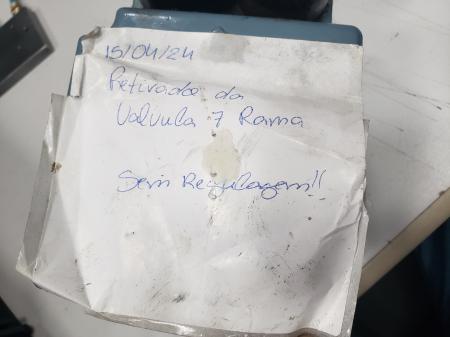 15/04/24
Retirado da
Valvula 7 Rama
Sem Regulagem!!